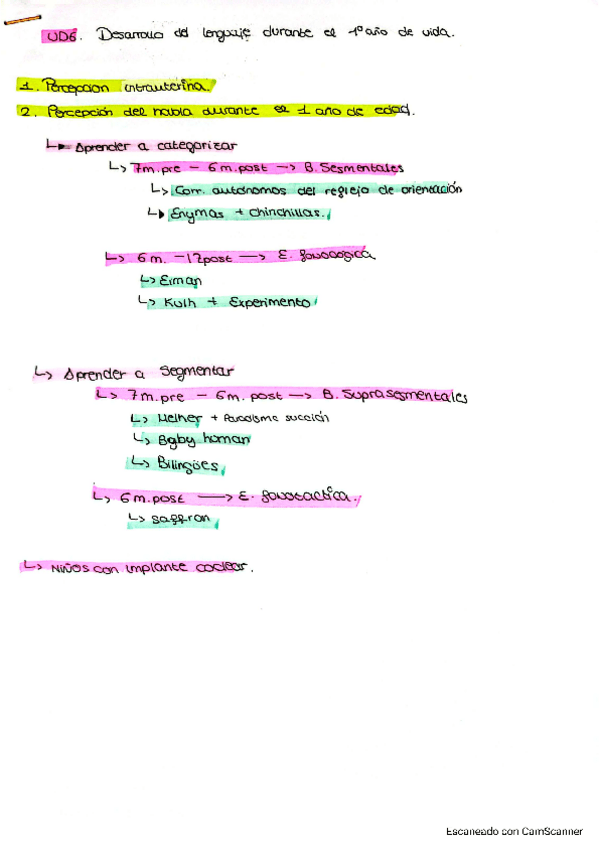 UD6. Desarrollo del lenguaje durante el 1º año de vida.
1. Percepcion intrauterina.
2. Percepción del habla durante el 1 año de edad.
↳ Aprender a categorizar
↳ 7m.pre - 6m.post → B. Segmentales
↳ Corr. autónomos del reflejo de orientación
↳ Enymas + chinchillas.
↳ 6m. - 12post → E. fonologica
↳ Eiman
↳ Kulh + Experimento
↳ Aprender a segmentar
↳ 7m.pre - 6m.post → B. Suprasegmentales
↳ Melher + Paradigma succión
↳ Baby human
↳ Bilingües
↳ 6m.post → E. fonotactica.
↳ Saffran
↳ Niños con implante coclear.
Escaneado con CamScanner